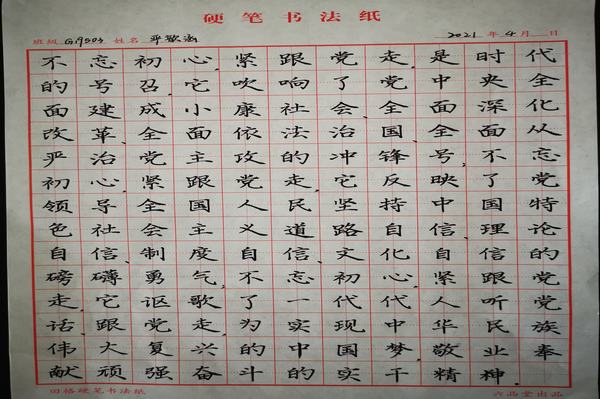 硬笔书法纸
班级 G19503 姓名 2021年4月 日
不忘初心,紧跟党走,是时代
的号召,它吹响了党中央全
面建成小康社会,全面深化
改革,全面依法治国,全面从
严治党主攻的冲锋号,不忘
初心,紧跟党走,它反映了党
领导全国人民坚持中国特
色社会主义道路自信、理论
自信、制度自信、文化自信的
磅礴勇气,不忘初心,紧跟党
走,它讴歌了一代代人听党
话,跟党走,为实现中华民族
伟大复兴的中国梦,敬业奉
献顽强奋斗的实干精神.
田格硬笔书法纸 六品堂出品